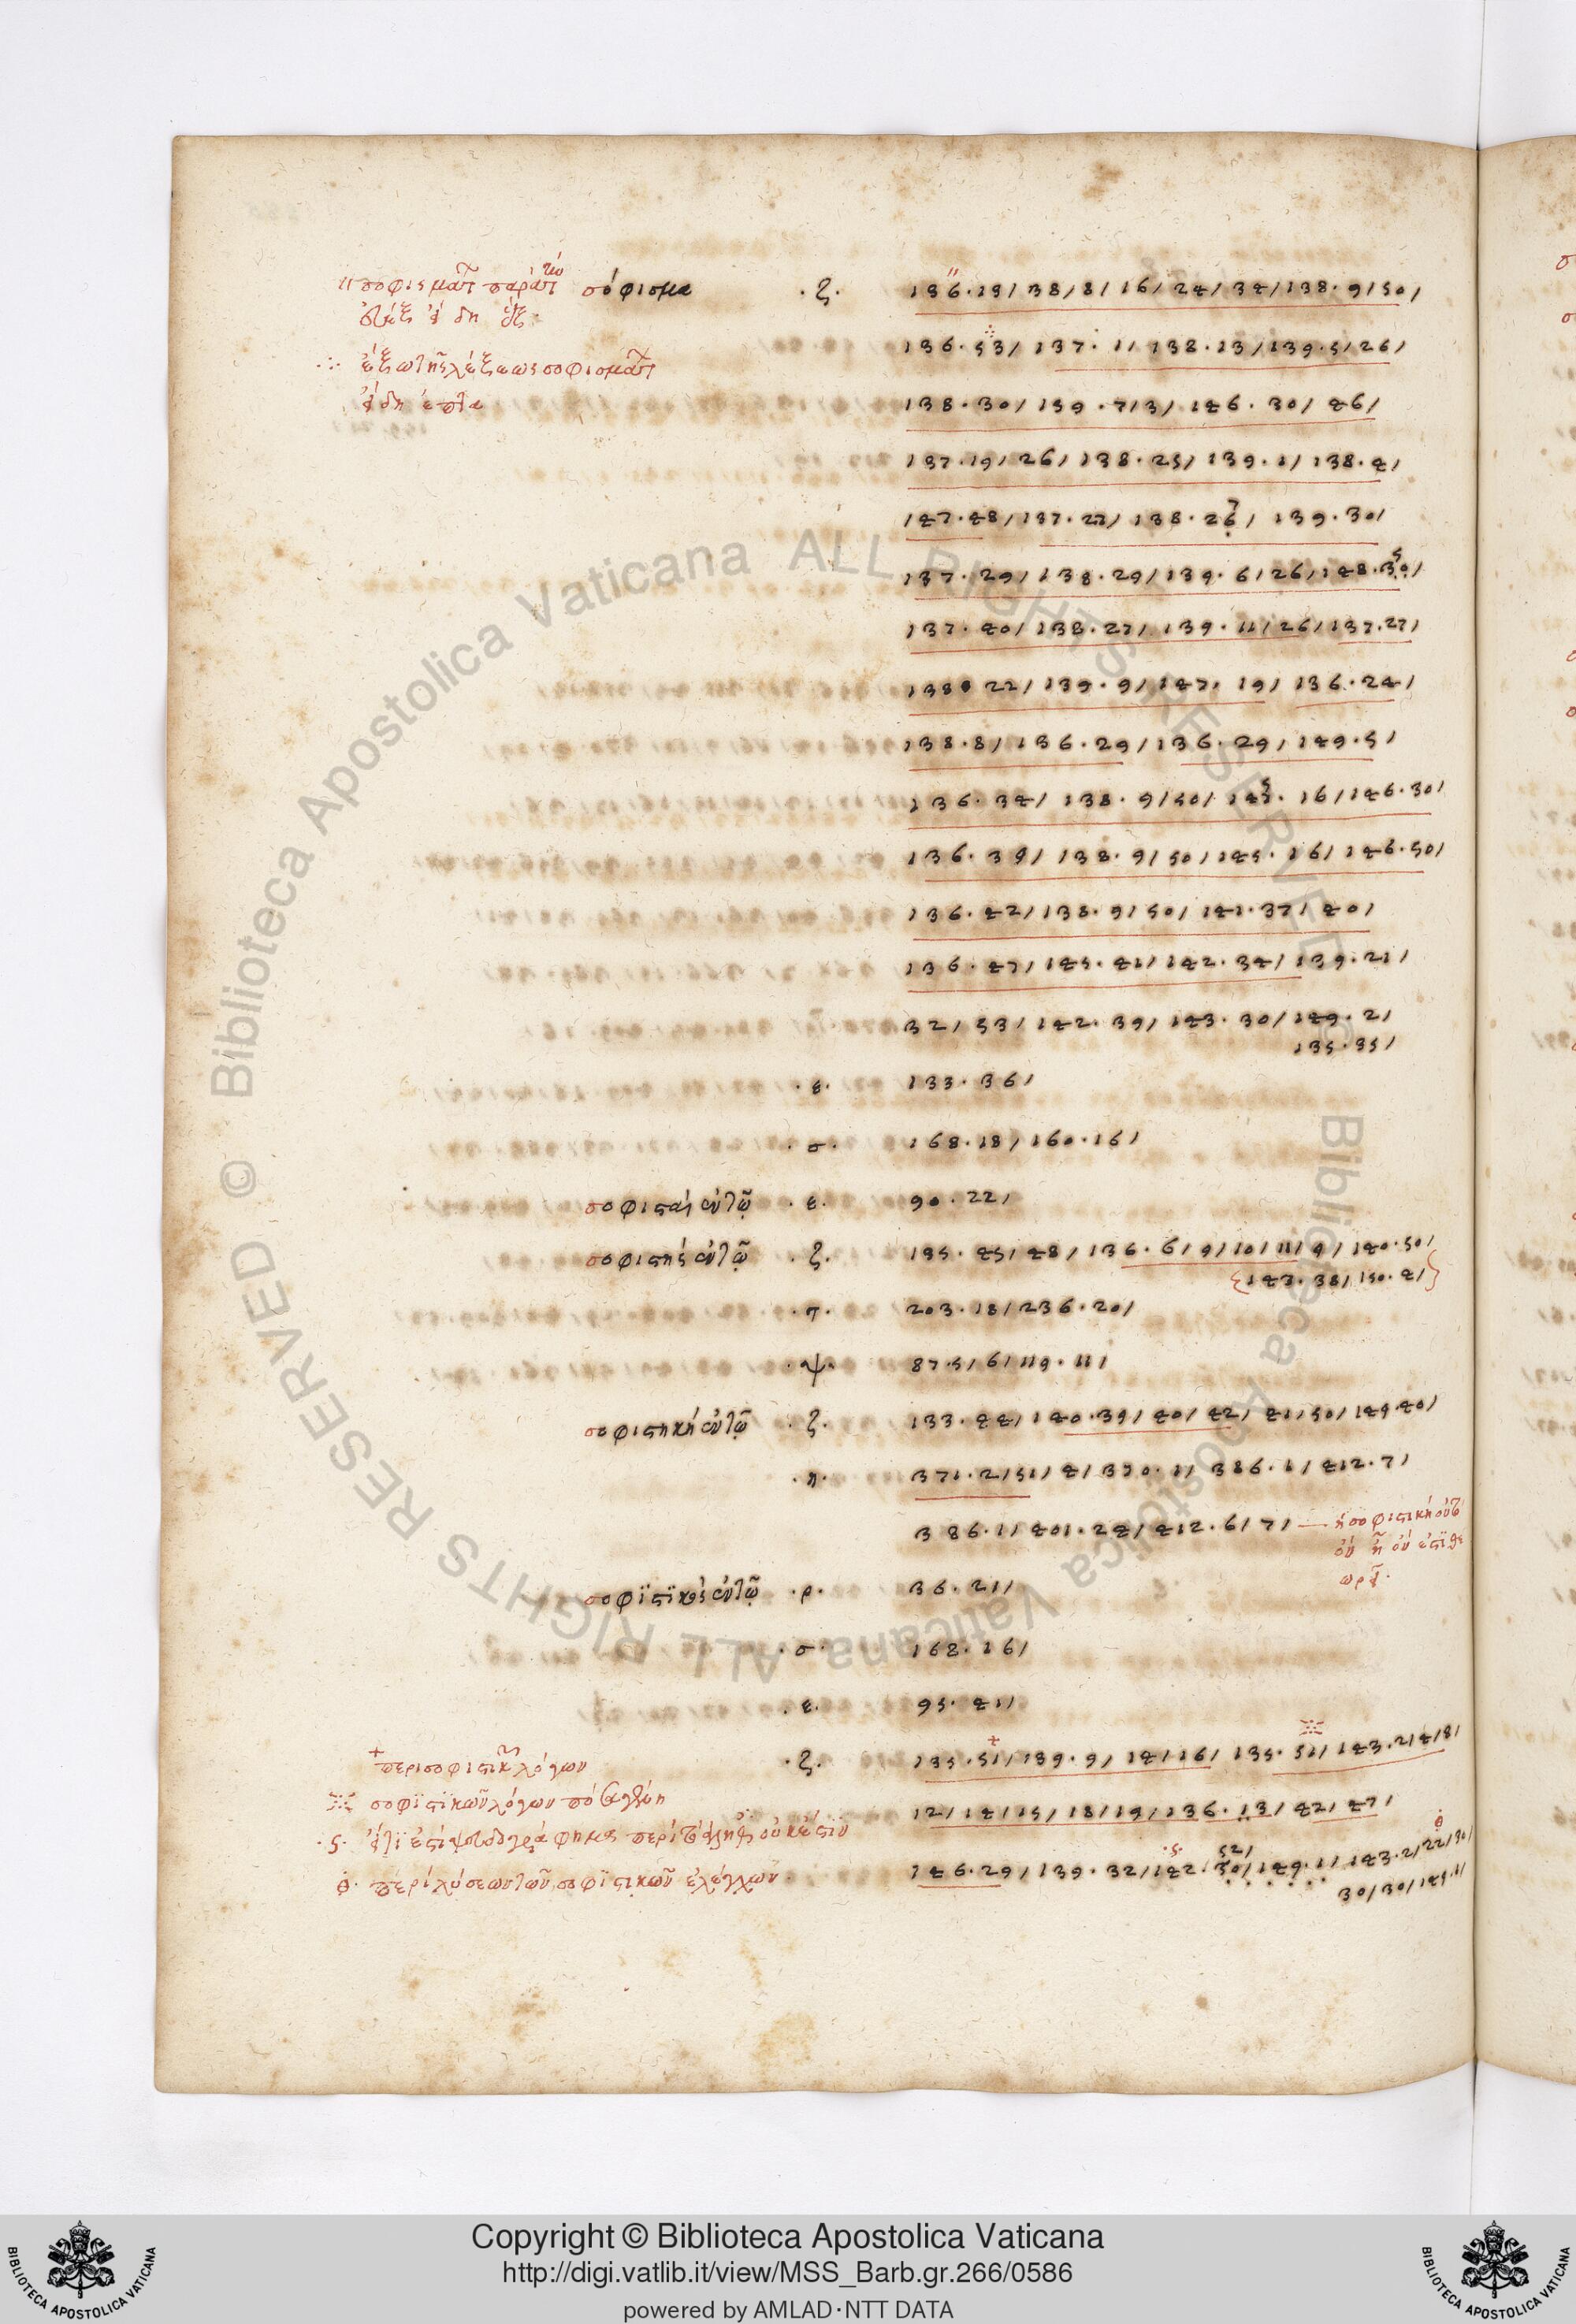 σόφισμα · ζ · 136 · 13 / 38 / 8 / 16 / 24 / 34 / 138 · 9 / 50 /
136 · 53 / 137 · 1 / 138 · 13 / 139 · 5 / 26 /
ἔξω τῆς λέξεως
138 · 30 / 139 · 7 / 3 / 146 · 30 / 46 /
137 · 19 / 26 / 138 · 25 / 139 · 1 / 138 · 4 /
147 · 48 / 137 · 22 / 138 · 26 / 139 · 30 /
137 · 29 / 138 · 29 / 139 · 6 / 26 / 148 · 30 /
137 · 40 / 138 · 27 / 139 · 11 / 26 / 137 · 27 /
138 · 22 / 139 · 9 / 147 · 19 / 136 · 24 /
138 · 8 / 136 · 29 / 136 · 29 / 149 · 5 /
136 · 34 / 138 · 9 / 50 / 16 / 146 · 30 /
136 · 39 / 138 · 9 / 50 / 145 · 16 / 146 · 50 /
136 · 42 / 138 · 9 / 50 / 141 · 37 / 40 /
136 · 47 / 145 · 41 / 142 · 34 / 139 · 21 /
32 / 53 / 142 · 39 / 143 · 30 / 149 · 2 /
135 · 35 /
· ε · 133 · 36 /
· σ · 168 · 18 / 160 · 16 /
σοφισταί · ε · 90 · 22 /
σοφιστής · ζ · 135 · 45 / 48 / 136 · 6 / 9 / 10 / 11 / 9 / 140 · 50 /
{ 143 · 38 / 150 · 4 / }
· τ · 203 · 18 / 236 · 20 /
· ψ · 87 · 5 / 6 / 119 · 11 /
σοφιστική · ζ · 133 · 44 / 140 · 39 / 40 / 42 / 41 / 50 / 145 · 40 /
· η · 371 · 2 / 51 / 4 / 386 · 1 / 412 · 7 /
386 · 1 / 401 · 24 / 412 · 6 / 7 / — ἡ σοφιστικὴ
· ρ · 36 · 21 /
· σ · 168 · 16 /
· ε · 95 · 41 /
+ περὶ σοφιστικῶν λόγων · ζ · 135 · 51 / 139 · 9 / 14 / 16 / 135 · 51 / 143 · 2 / 4 / 8 /
σοφιστικῶν λόγων 12 / 14 / 15 / 18 / 19 / 136 · 13 / 42 / 47 /
περὶ λύσεως τῶν σοφιστικῶν ἐλέγχων 146 · 29 / 139 · 32 / 142 · 50 / 149 · 1 / 143 · 2 / 22 / 30 /
30 / 30 /
Biblioteca Apostolica Vaticana ALL RIGHTS RESERVED ©
Biblioteca Apostolica Vaticana ALL RIGHTS RESERVED ©
Copyright © Biblioteca Apostolica Vaticana
http://digi.vatlib.it/view/MSS_Barb.gr.266/0586
powered by AMLAD · NTT DATA
BIBLIOTECA APOSTOLICA VATICANA
BIBLIOTECA APOSTOLICA VATICANA